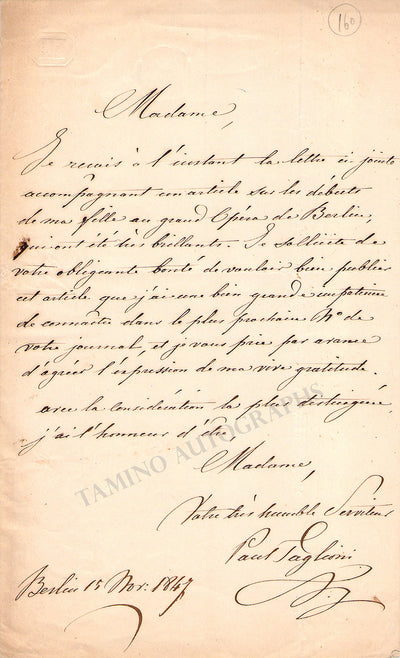 160
Madame,
Je reçois à l'instant la lettre ci-jointe
accompagnant un article sur les débuts
de ma fille au grand Opéra de Berlin,
qui ont été très brillants. Je sollicite de
votre obligeante bonté de vouloir bien publier
cet article que j'ai une bien grande impatience
de connaître dans le plus prochain No de
votre journal, et je vous prie par avance
d'agréer l'expression de ma vive gratitude.
avec la considération la plus distinguée,
j'ai l'honneur d'être
TAMINO AUTOGRAPHS
Madame,
Votre très humble Serviteur
Paul Taglioni
Berlin 15 Nov: 1847